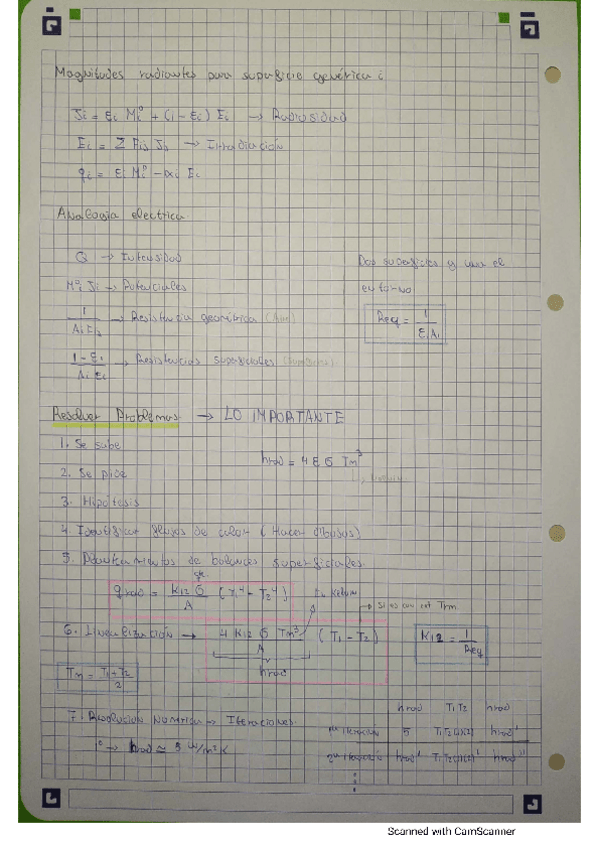 Magnitudes radiantes para superficie genérica i
Ji = εi Mi° + (1 - εi) Ei → Radiosidad
Ei = Σ Fij Jj → Irradiación
qi = εi Mi° - αi Ei
Analogía electrica
Q → Intensidad
Mi° Ji → Potenciales
1 / Ai Fij → Resistencia geométrica
1 - εi / Ai εi → Resistencias superficiales
Dos superficies y una el
entorno
Req = 1 / εi Ai
Resolver Problemas → LO IMPORTANTE
1. Se sabe
hrad = 4 ε σ Tm³
2. Se pide
3. Hipótesis
4. Identificar flujos de calor (Hacer dibujos)
5. Planteamientos de balances superficiales
cte.
qrad = K12 σ / A (T1⁴ - T2⁴)
En Kelvin
6. Linealización → 4 K12 σ Tm³ / A (T1 - T2)
hrad
K12 = 1 / Req
Tm = T1 + T2 / 2
7. Resolución Numérica → Iteraciones
1° → hrad ≈ 5 W/m²K
hrad T1 T2 hrad
1ª iteración 5 hrad'
2ª iteración hrad' hrad''
Scanned with CamScanner